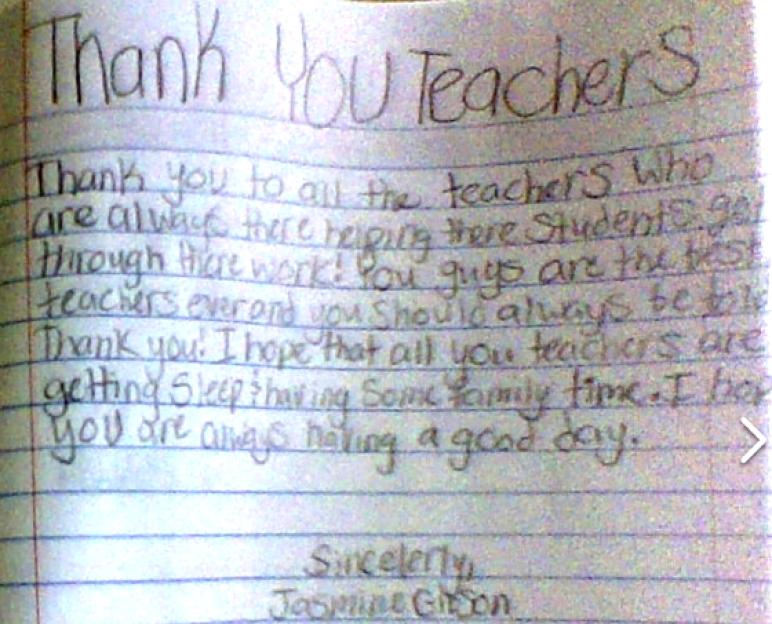 Thank You Teachers
Thank you to all the teachers who
are always there helping there students
through there work! You guys are the best
teachers ever and you should always be
Thank you! I hope that all you teachers are
getting sleep & having some family time. I
you are always having a good day.
Sincelerly,
Jasmine Gibson